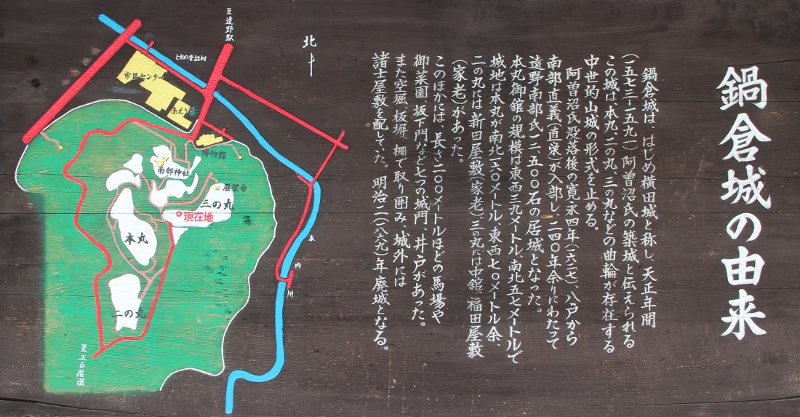 鍋倉城の由来
鍋倉城は、はじめ横田城と称し、天正年間
(一五七三―一五九一)阿曽沼氏の築城と伝えられる
この城は、本丸、二の丸、三の丸などの曲輪が存在する
中世的山城の形式を止める。
阿曽沼氏没落後の寛永四年(一六二七)、八戸から
南部直義(直栄)が入部し、二四〇年余りにわたって
遠野南部氏一二、五〇〇石の居城となった。
本丸御館の規模は東西三九メートル、南北五七メートルで
城地は本丸が南北一五〇メートル、東西七〇メートル余、
二の丸には新田屋敷(家老)、三の丸には中館、福田屋敷
(家老)があった。
このほかには、長さ二〇〇メートルほどの馬場や
御菜園、坂下門など七つの城門、井戸があった。
また空堀、板塀、柵で取り囲み、城外には
諸士屋敷を配していた。明治二(一八六九)年廃城となる。
北
至遠野駅
とおの昔話村
市民センター
博物館
南部神社
展望台
三の丸
現在地
本丸
二の丸
来
内
川
至五百羅漢